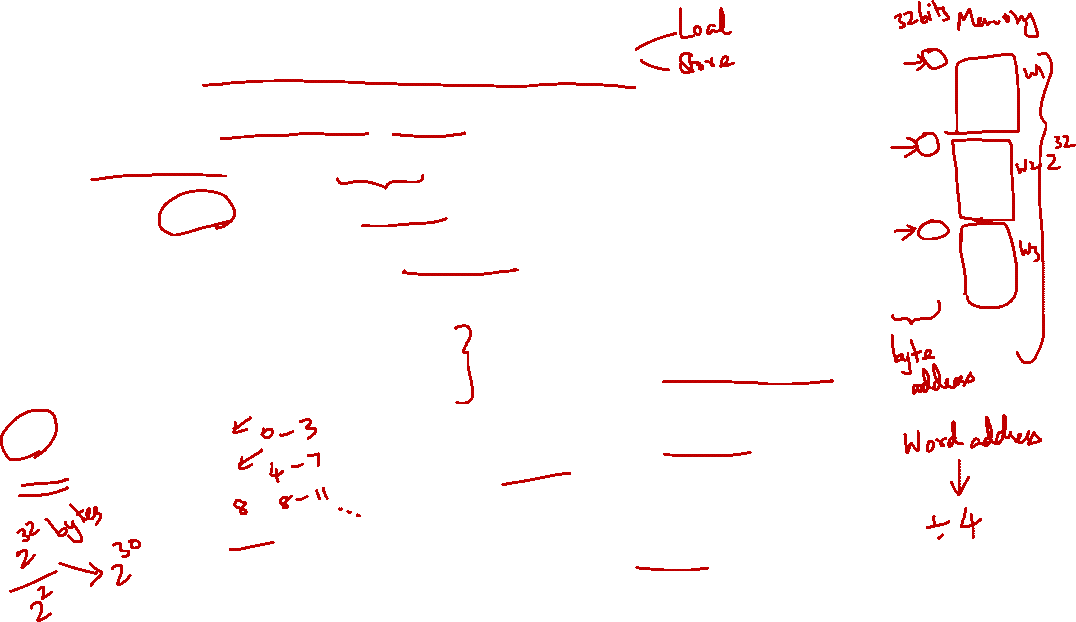 Load
Store
32bits Memory
W1
W2
2^32
W3
byte
address
Word address
÷ 4
0-3
4-7
8 8-11 ...
2^32 bytes
2^2
→ 2^30